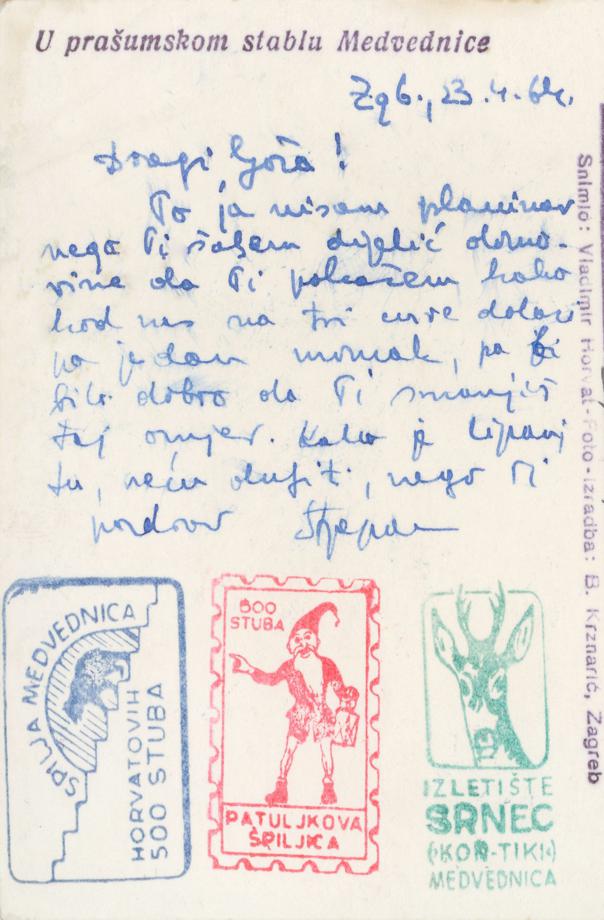 U prašumskom stablu Medvednice
Zgb., 23.4.64.
Dragi Goža!
To ja nisam planinar
nego Ti šaljem dijelić domo-
vine da Ti pokažem kako
kod nas na tri cure dolazi
po jedan momak, pa bi
bilo dobro da Ti smanjiš
taj omjer. Kako je lipanj
tu, neću duljiti, nego Ti
pozdrav Stjepan
Snimio: Vladimir Horvat - Foto-izradba: B. Krznarić, Zagreb
ŠPILJA MEDVEDNICA
HORVATOVIH
500 STUBA
500
STUBA
PATULJKOVA
ŠPILJICA
IZLETIŠTE
SRNEC
(KON-TIKI)
MEDVEDNICA